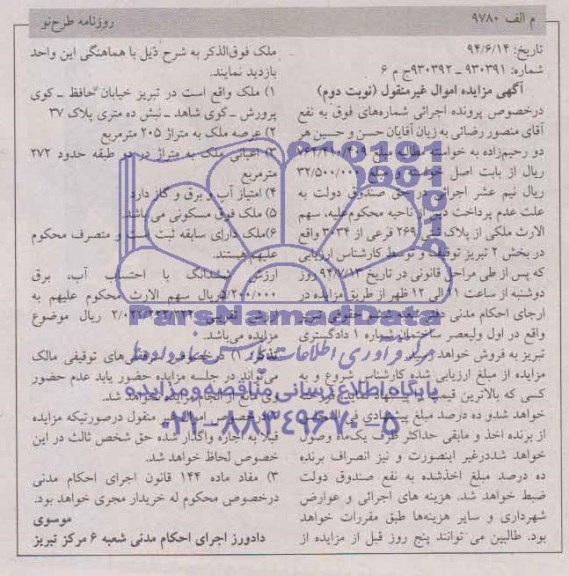 روزنامه طرح‌نو
م الف ۹۷۸۰
تاریخ: ۹۴/۶/۱۴
شماره: ۹۳۰۳۹۱ ـ ۹۳۰۳۹۲ج م ۶
آگهی مزایده اموال غیرمنقول (نوبت دوم)
درخصوص پرونده اجرائی شماره‌های فوق به نفع
آقای منصور رضائی به زیان آقایان حسن و حسین هر
دو رحیم‌زاده به خواسته مطالبه مبلغ
ریال از بابت اصل خواسته و مبلغ ۳۲/۵۰۰/۰۰۰
ریال نیم عشر اجرائی در حق صندوق دولت به
علت عدم پرداخت دین از ناحیه محکوم‌علیه، سهم
الارث ملکی از پلاک ثبتی ۲۶۹ فرعی از ۳۰۳۴ واقع
در بخش ۲ تبریز توقیف و توسط کارشناس ارزیابی
که پس از طی مراحل قانونی در تاریخ ۹۴/۷/۱۳ روز
دوشنبه از ساعت ۱۱ الی ۱۲ ظهر از طریق مزایده در
اجرای احکام مدنی دادگستری
واقع در اول ولیعصر ساختمان شماره ۱ دادگستری
تبریز به فروش خواهد رسید.
مزایده از مبلغ ارزیابی شده کارشناس شروع و به
کسی که بالاترین قیمت را پیشنهاد نماید فروخته
خواهد شد و ده درصد مبلغ پیشنهادی فی‌المجلس
از برنده اخذ و مابقی حداکثر ظرف یک‌ماه وصول
خواهد شد درغیر اینصورت و نیز انصراف برنده
ده درصد مبلغ اخذشده به نفع صندوق دولت
ضبط خواهد شد. هزینه های اجرائی و عوارض
شهرداری و سایر هزینه‌ها طبق مقررات خواهد
بود. طالبین می توانند پنج روز قبل از مزایده از
ملک فوق‌الذکر به شرح ذیل با هماهنگی این واحد
بازدید نمایند.
۱) ملک واقع است در تبریز خیابان حافظ ـ کوی
پرورش ـ کوی شاهد ـ نبش ده متری پلاک ۳۷
۲) عرصه ملک به متراژ ۲۰۵ مترمربع
۳) اعیانی ملک به متراژ در دو طبقه حدود ۲۷۲
مترمربع
۴) امتیاز آب و برق و گاز دارد
۵) ملک فوق مسکونی می باشد.
۶) ملک دارای سابقه ثبت است و متصرف محکوم
علیهم هستند.
ارزش ششدانگ با احتساب آب، برق
ریال سهم الارث محکوم علیهم به
ریال موضوع
مزایده می‌باشد.
تذکر: ۱) درخصوص توقیفی مالک
می‌تواند در جلسه مزایده حضور یابد عدم حضور
وی مانع از انجام مزایده نخواهد شد.
منقول درصورتیکه مزایده
قبلا به اجاره واگذار شده حق شخص ثالث در این
خصوص لحاظ خواهد شد.
۳) مفاد ماده ۱۴۴ قانون اجرای احکام مدنی
درخصوص محکوم له خریدار مجری خواهد بود.
موسوی
دادورز اجرای احکام مدنی شعبه ۶ مرکز تبریز
ParsNamadData
پایگاه اطلاع رسانی مناقصه و مزایده
۰۲۱-۸۸۳۴۹۶۷۰-۵